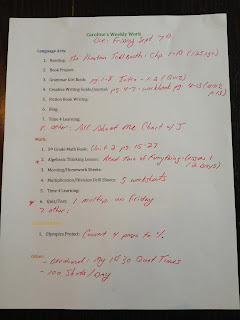 Caroline's Weekly Work
Due: Friday Sept 7th
Language Arts:
1. Reading: The Phantom Tollbooth: Chp 1-10 (125 pgs)
2. Book Project:
3. Grammar Quiz Book: pg. 1-8 Intro - 1.2 (Quiz)
4. Creative Writing Guide/Journal: pg. 4-7 - workbook pg. 4-13
5. Fiction Book Writing:
6. Blog
7. Time 4 Learning:
8. other: All About Me Chart 4 J
Math:
1. 5th Grade Math Book: Unit 2 pgs. 15-27
2. Algebraic Thinking Lesson: Read Two of Everything - Lesson 1
(2 Days)
3. Morning/Homework Sheets:
4. Multiplication/Division Drill Sheets: 5 worksheets
5. Time 4 Learning:
6. Quiz/Test: 1 multip. on Friday
7. other:
1. Olympics Project: Convert 4 pages to %.
Other:
- Cardinal: My 1st 30
- 100 Shots/Day